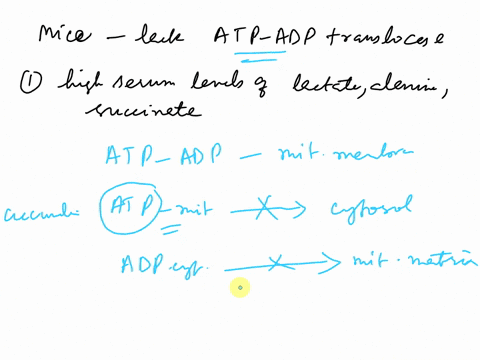 Mice – lack ATP–ADP translocase
① high serum levels of lactate, alanine,
succinate
ATP – ADP – mit. membra
accumula ATP – mit → cytosol
ADP cyt. → mit. matrix